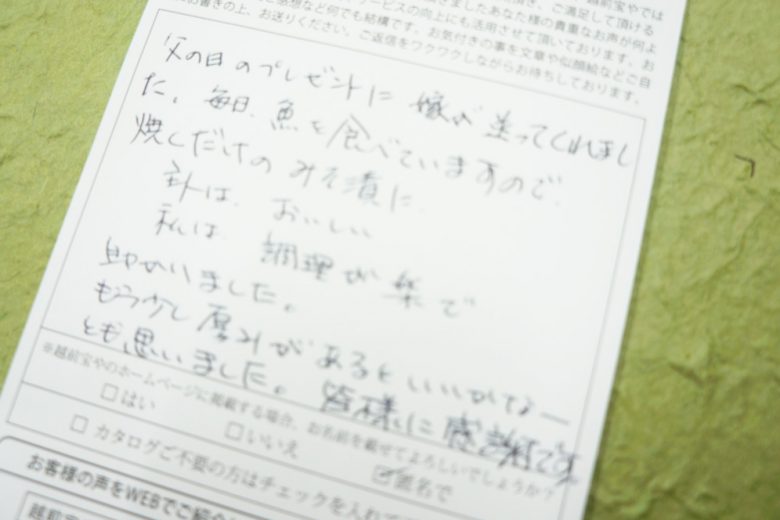 頂き、ご満足して頂ける
サービスの向上にも活用させて頂いております。お
感想など何でも結構です。お気付きの事を文章や似顔絵などご自
お書きの上、お送りください。ご返信をワクワクしながらお待ちしております。
父の日のプレゼントに 嫁が 送ってくれまし
た。毎日、魚を食べていますので、
焼くだけの みそ漬に
主人は、おいしい
私は、調理が楽で
助かりました。
もう少し厚みがあるといいかなー
とも思いました。皆様に感謝です
※越前宝やのホームページに掲載する場合、お名前を載せてよろしいでしょうか?
□はい □いいえ ☑匿名で
□ カタログご不要の方はチェックを入れて
お客様の声をWEBでご紹介
越前宝